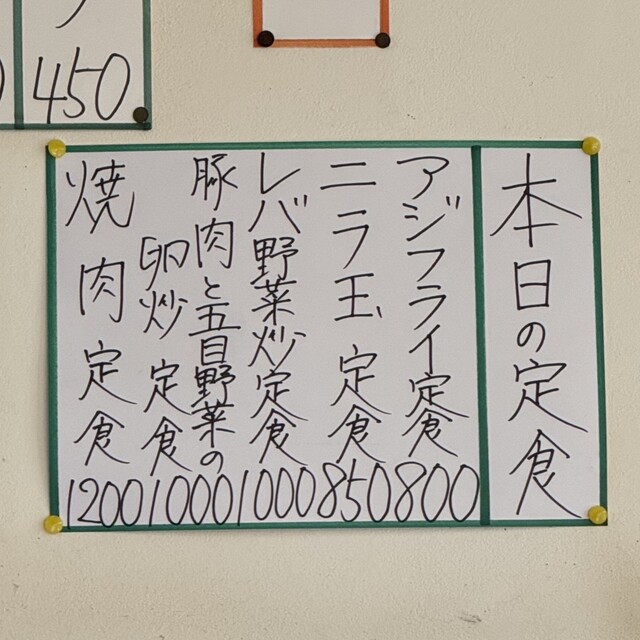 450
本日の定食
アジフライ定食 800
ニラ玉定食 850
レバ野菜炒定食 1000
豚肉と五目野菜の
卵炒定食 1000
焼肉定食 1200